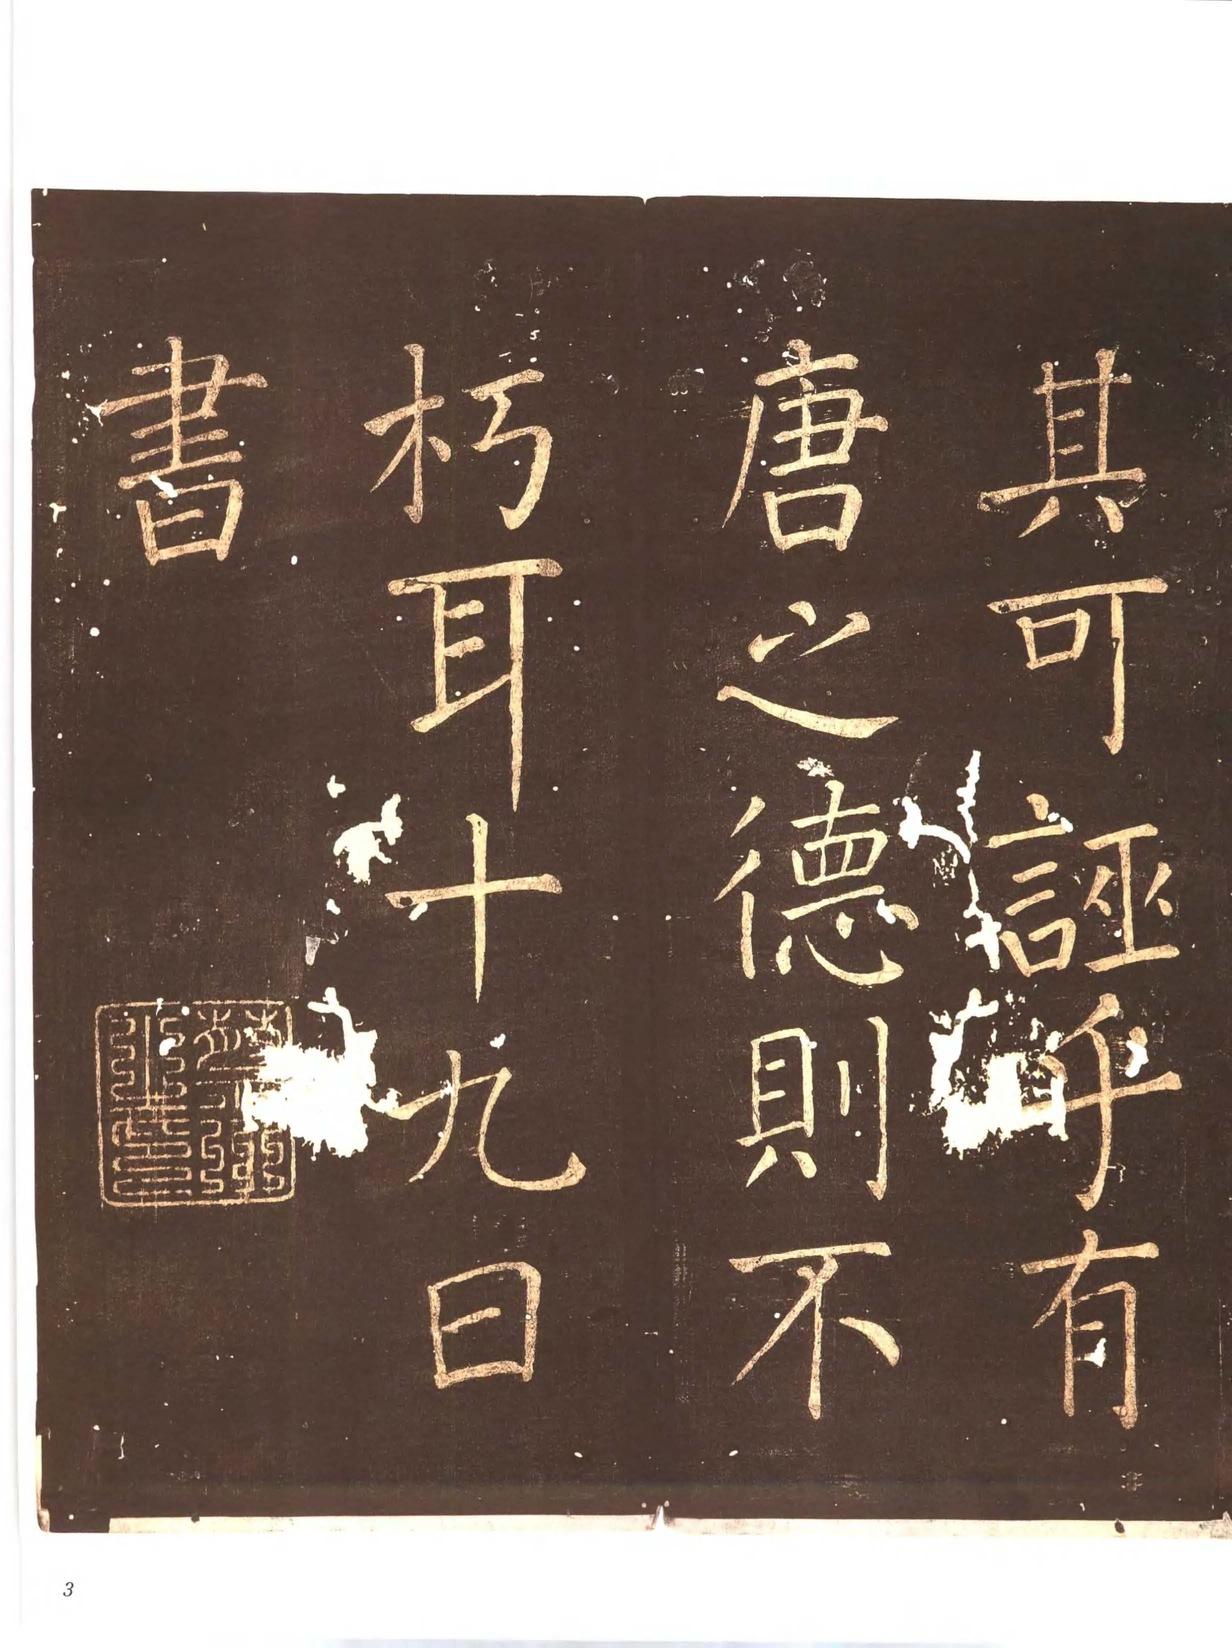 其可誣乎有
唐之德則不
朽耳十九日
書
3